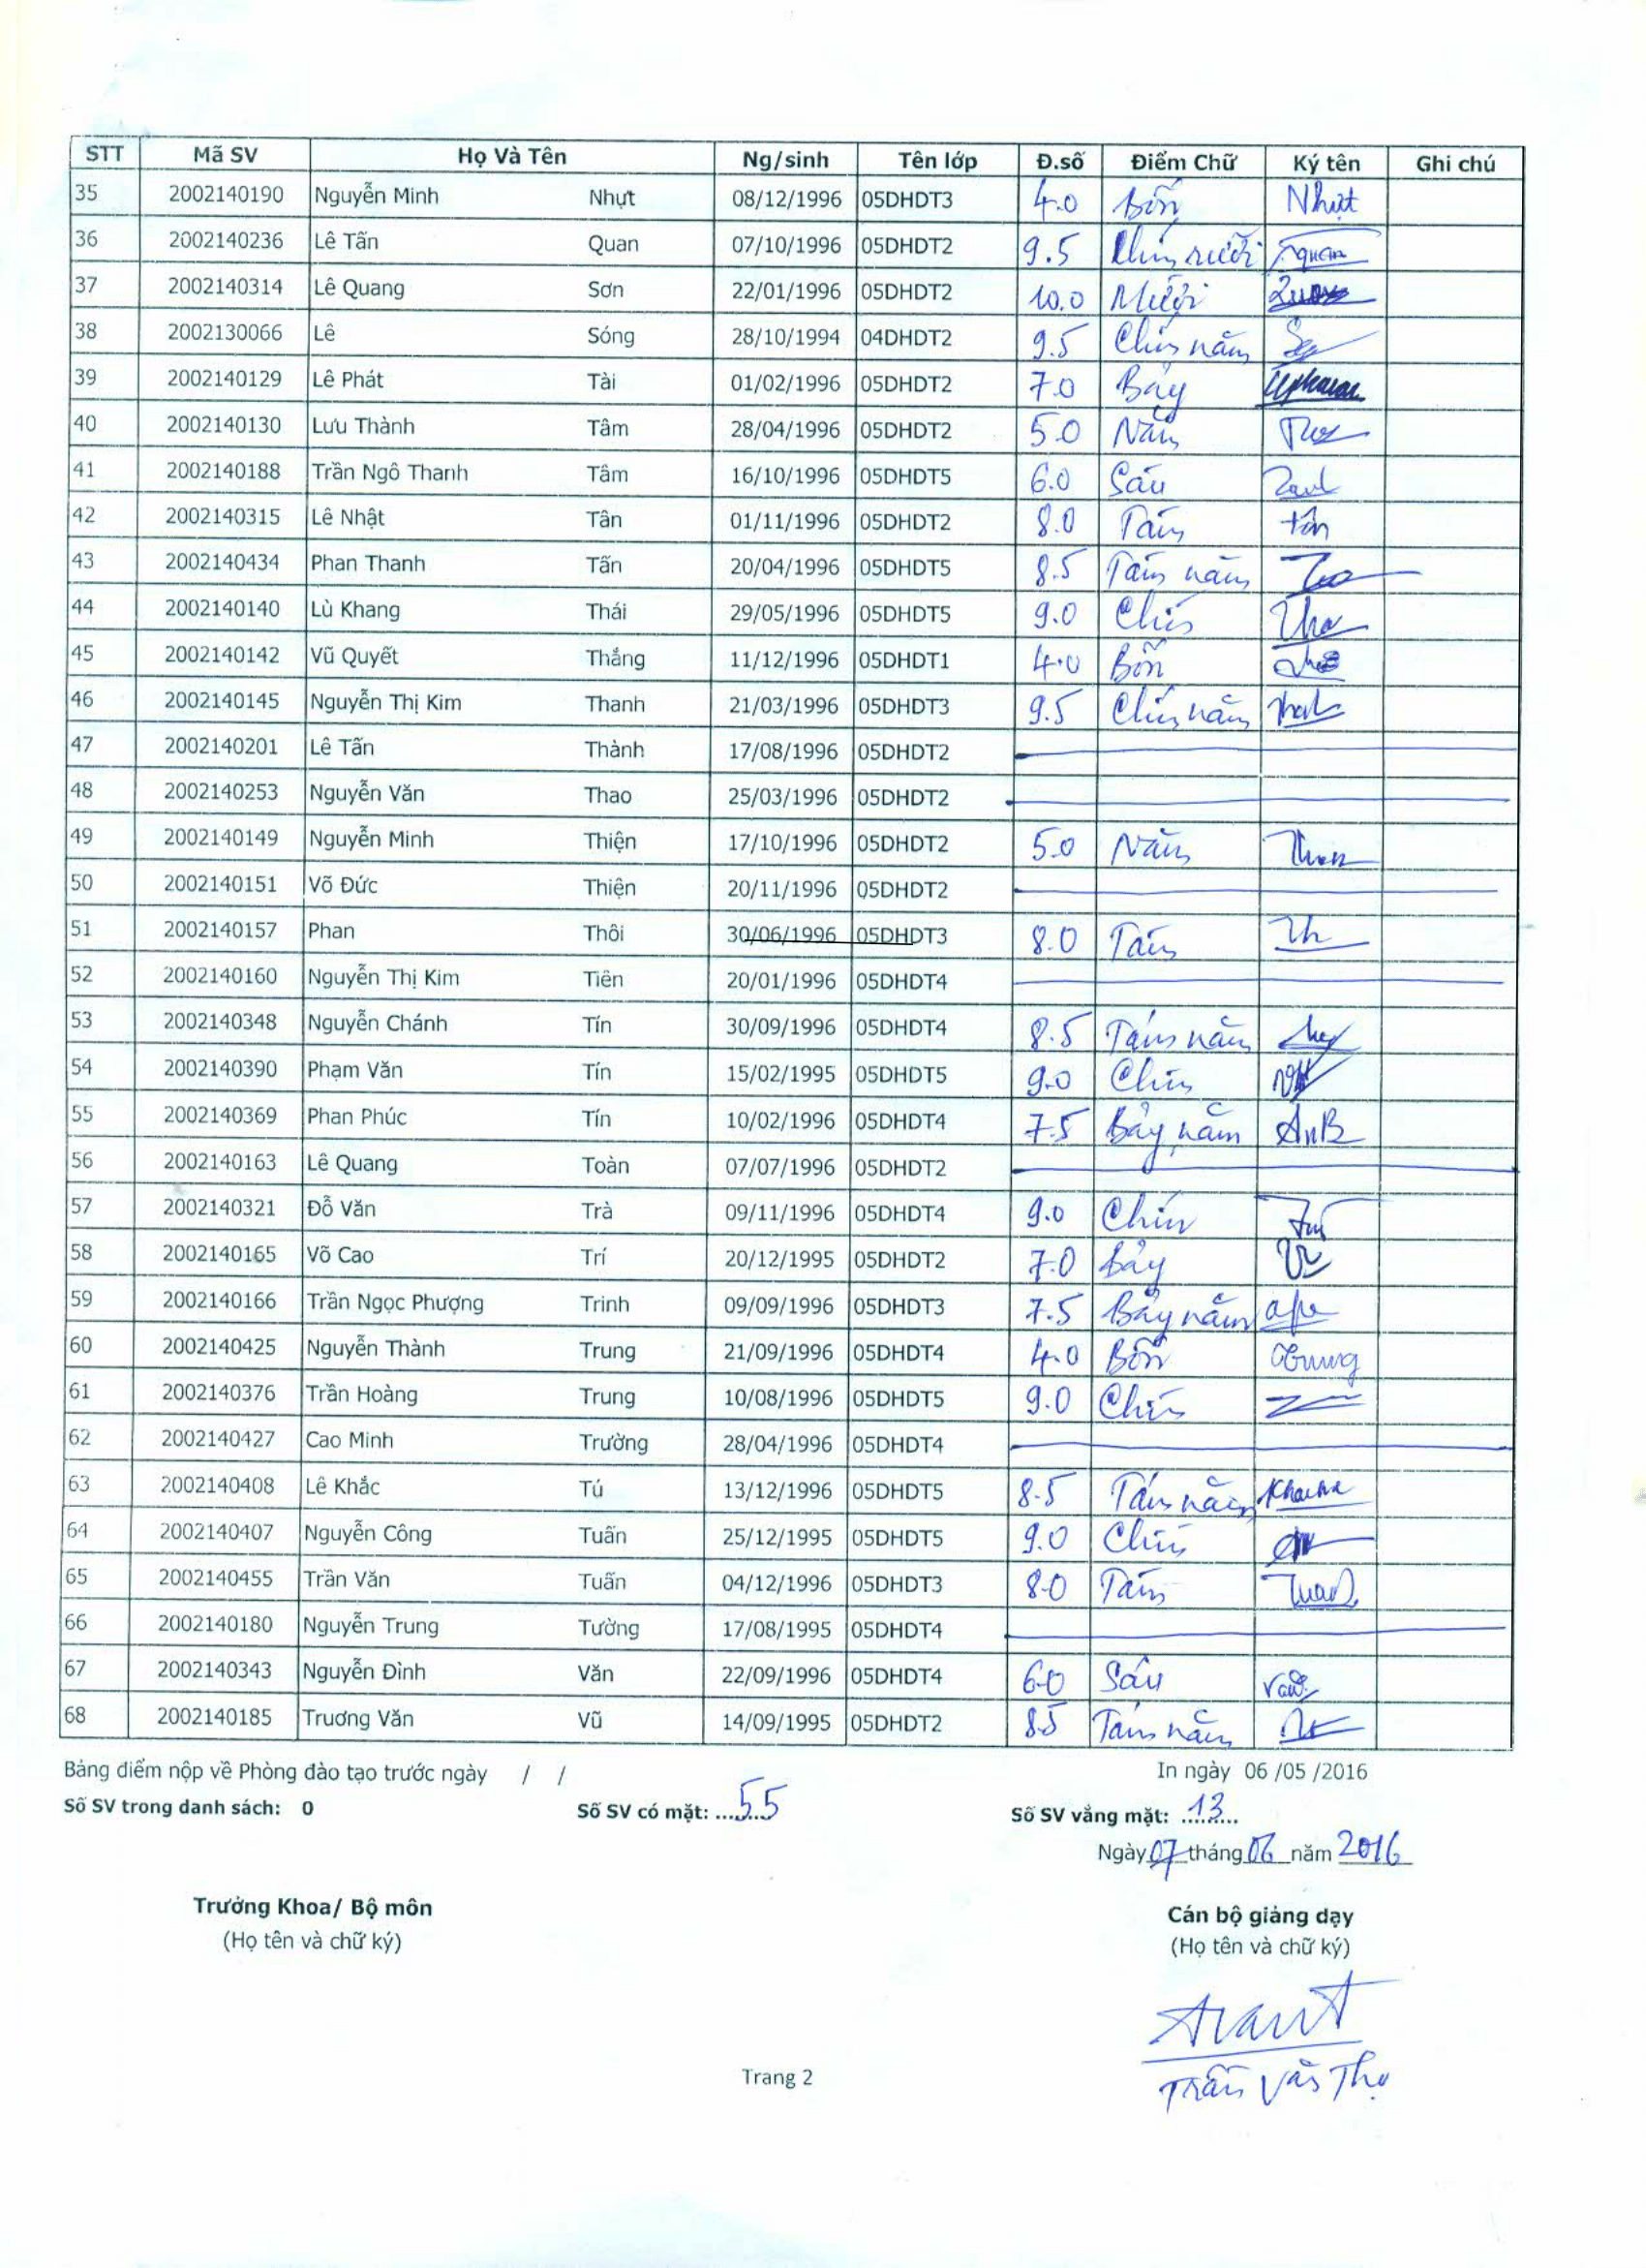 STT Mã SV Họ Và Tên Ng/sinh Tên lớp Đ.số Điểm Chữ Ký tên Ghi chú
35 2002140190 Nguyễn Minh Nhựt 08/12/1996 05DHDT3 4.0 Bốn Nhựt
36 2002140236 Lê Tấn Quan 07/10/1996 05DHDT2 9.5 Chín rưỡi Quan
37 2002140314 Lê Quang Sơn 22/01/1996 05DHDT2 10.0 Mười
38 2002130066 Lê Sóng 28/10/1994 04DHDT2 9.5 Chín năm
39 2002140129 Lê Phát Tài 01/02/1996 05DHDT2 7.0 Bảy
40 2002140130 Lưu Thành Tâm 28/04/1996 05DHDT2 5.0 Năm
41 2002140188 Trần Ngô Thanh Tâm 16/10/1996 05DHDT5 6.0 Sáu
42 2002140315 Lê Nhật Tân 01/11/1996 05DHDT2 8.0 Tám tân
43 2002140434 Phan Thanh Tấn 20/04/1996 05DHDT5 8.5 Tám năm
44 2002140140 Lù Khang Thái 29/05/1996 05DHDT5 9.0 Chín
45 2002140142 Vũ Quyết Thắng 11/12/1996 05DHDT1 4.0 Bốn
46 2002140145 Nguyễn Thị Kim Thanh 21/03/1996 05DHDT3 9.5 Chín năm
47 2002140201 Lê Tấn Thành 17/08/1996 05DHDT2
48 2002140253 Nguyễn Văn Thao 25/03/1996 05DHDT2
49 2002140149 Nguyễn Minh Thiện 17/10/1996 05DHDT2 5.0 Năm
50 2002140151 Võ Đức Thiện 20/11/1996 05DHDT2
51 2002140157 Phan Thôi 30/06/1996 05DHDT3 8.0 Tám Th
52 2002140160 Nguyễn Thị Kim Tiên 20/01/1996 05DHDT4
53 2002140348 Nguyễn Chánh Tín 30/09/1996 05DHDT4 8.5 Tám năm
54 2002140390 Phạm Văn Tín 15/02/1995 05DHDT5 9.0 Chín
55 2002140369 Phan Phúc Tín 10/02/1996 05DHDT4 7.5 Bảy năm
56 2002140163 Lê Quang Toàn 07/07/1996 05DHDT2
57 2002140321 Đỗ Văn Trà 09/11/1996 05DHDT4 9.0 Chín
58 2002140165 Võ Cao Trí 20/12/1995 05DHDT2 7.0 Bảy
59 2002140166 Trần Ngọc Phượng Trinh 09/09/1996 05DHDT3 7.5 Bảy năm
60 2002140425 Nguyễn Thành Trung 21/09/1996 05DHDT4 4.0 Bốn Trung
61 2002140376 Trần Hoàng Trung 10/08/1996 05DHDT5 9.0 Chín
62 2002140427 Cao Minh Trường 28/04/1996 05DHDT4
63 2002140408 Lê Khắc Tú 13/12/1996 05DHDT5 8.5 Tám năm
64 2002140407 Nguyễn Công Tuấn 25/12/1995 05DHDT5 9.0 Chín
65 2002140455 Trần Văn Tuấn 04/12/1996 05DHDT3 8.0 Tám
66 2002140180 Nguyễn Trung Tường 17/08/1995 05DHDT4
67 2002140343 Nguyễn Đình Văn 22/09/1996 05DHDT4 6.0 Sáu
68 2002140185 Trương Văn Vũ 14/09/1995 05DHDT2 8.5 Tám năm
Bảng điểm nộp về Phòng đào tạo trước ngày / / In ngày 06 /05 /2016
Số SV trong danh sách: 0 Số SV có mặt: ...55 Số SV vắng mặt: ..13...
Ngày 07 tháng 06 năm 2016
Trưởng Khoa/ Bộ môn Cán bộ giảng dạy
(Họ tên và chữ ký) (Họ tên và chữ ký)
Trần Văn Thọ
Trang 2